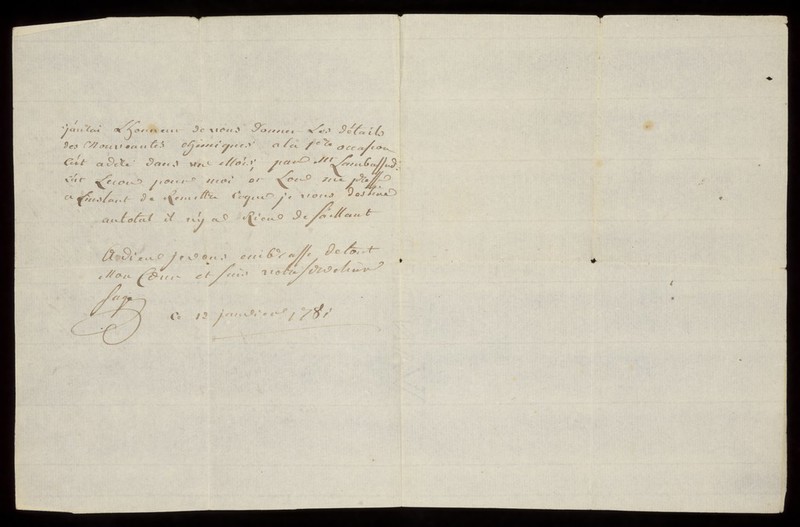 j'aurai Lhonneur de vous Donner Les détails
des Nouveautés chimiques a la p.re occasion
C'est adire dans un Mois, par Mr Lambassad.
est Lecons pour moi et Lon me presse
a Linstant de Remettre Ceque je vous destine
autotal il n'y a Rien de saillant
Adieu je vous embrasse detout
Mon Cœur et suis votre serviteur
Sage
Ce 12 janvier 1781